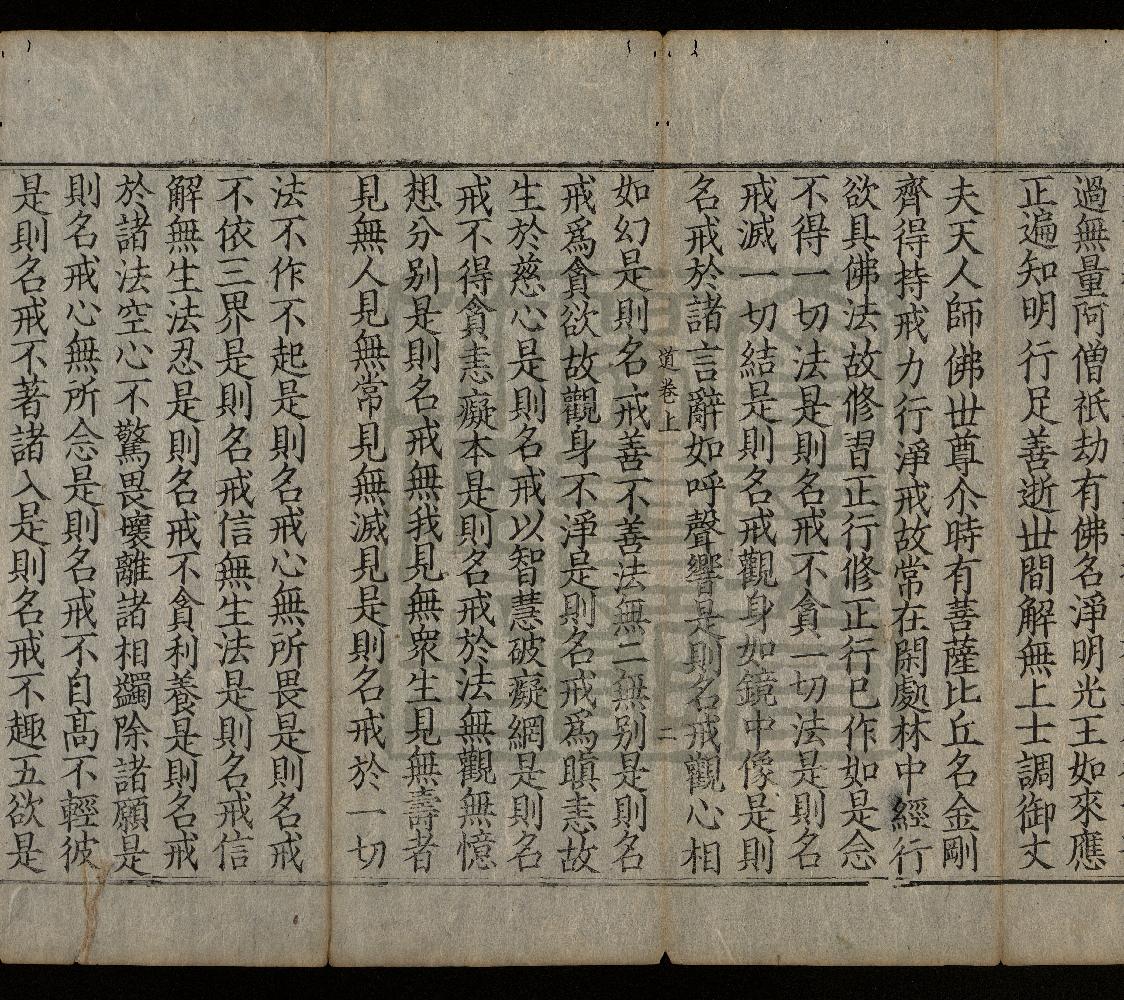 過無量阿僧祇劫有佛名淨明光王如來應
正遍知明行足善逝世間解無上士調御丈
夫天人師佛世尊尒時有菩薩比丘名金剛
齊得持戒力行淨戒故常在閑處林中經行
欲具佛法故修習正行修正行已作如是念
不得一切法是則名戒不貪一切法是則名
戒滅一切結是則名戒觀身如鏡中像是則
名戒於諸言辭如呼聲響是則名戒觀心相
道卷上 二
如幻是則名戒善不善法無二無別是則名
戒爲貪欲故觀身不淨是則名戒爲瞋恚故
生於慈心是則名戒以智慧破癡網是則名
戒不得貪恚癡本是則名戒於法無觀無憶
想分別是則名戒無我見無衆生見無壽者
見無人見無常見無滅見是則名戒於一切
法不作不起是則名戒心無所畏是則名戒
不依三界是則名戒信無生法是則名戒信
解無生法忍是則名戒不貪利養是則名戒
於諸法空心不驚畏壞離諸相蠲除諸願是
則名戒心無所念是則名戒不自髙不輕彼
是則名戒不著諸入是則名戒不趣五欲是